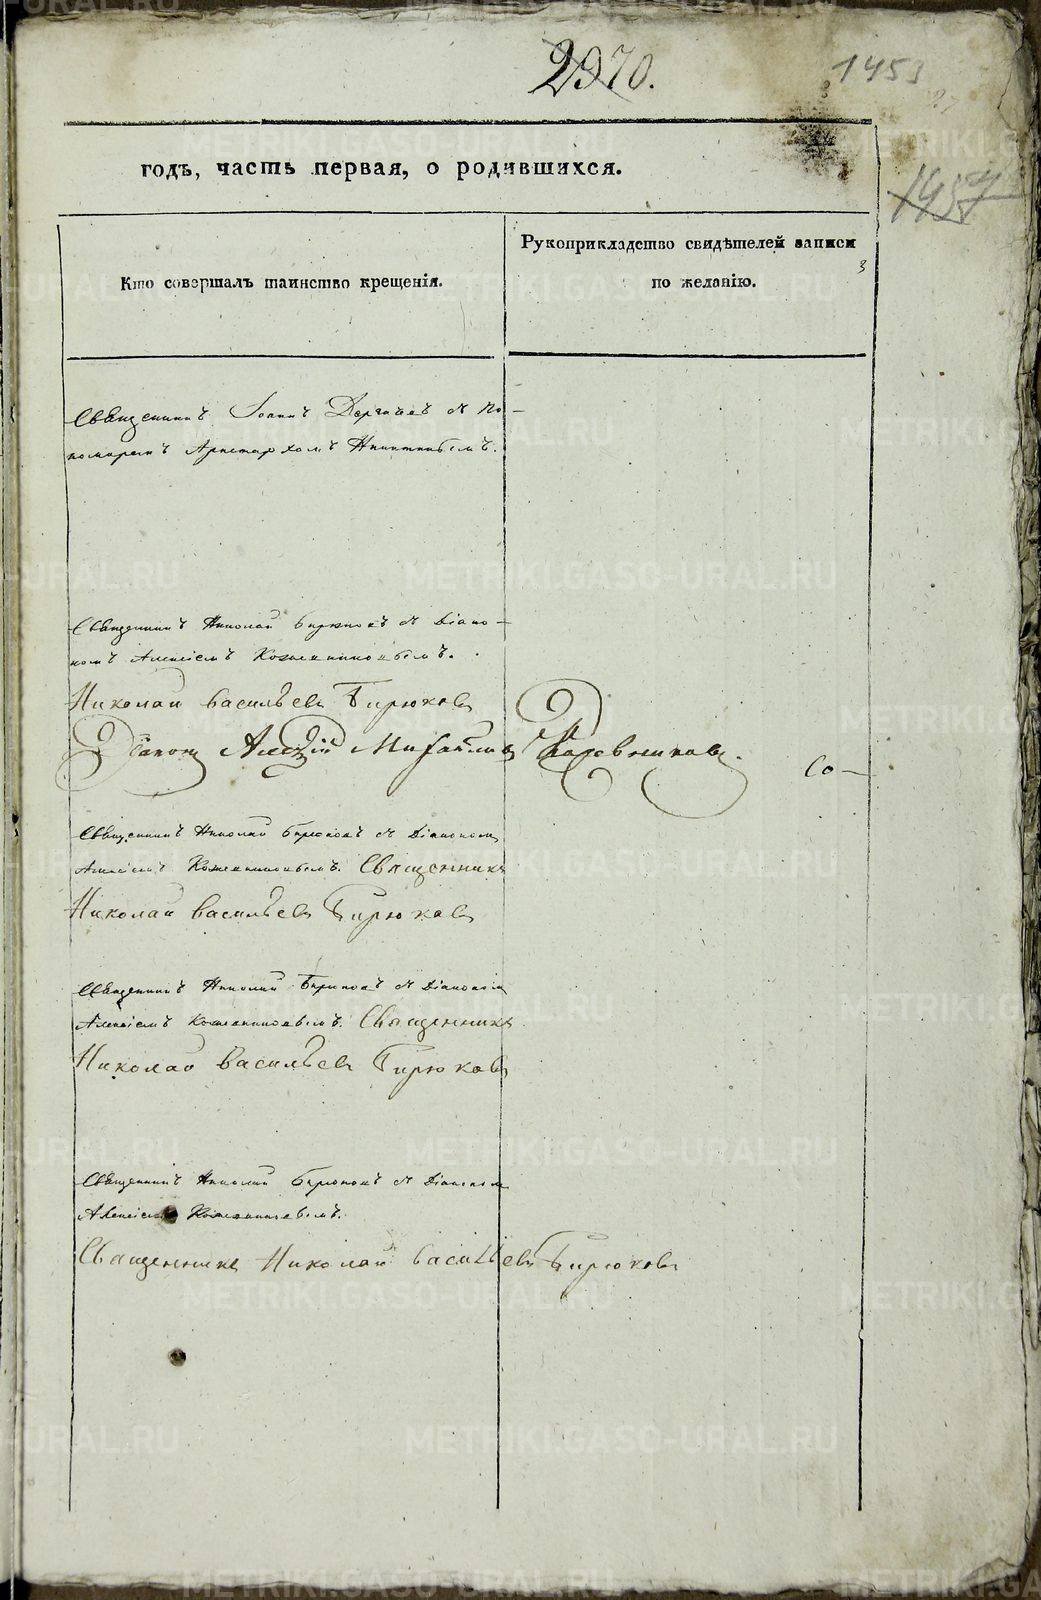 2970.
1453
1457
годъ, часть первая, о родившихся.
Кто совершалъ таинство крещенія.
Рукоприкладство свидѣтелей записи
по желанію.
Священникъ Іоаннъ Дергачевъ и по-
номаремъ Аристархомъ
Священникъ Николай Бирюковъ и Діако-
номъ Алексіемъ Кожевниковымъ.
Николай Васильевъ Бирюковъ
Діаконъ Алексій Михайловъ Кожевниковъ.
Со-
Священникъ Николай Бирюковъ и Діакономъ
Алексіемъ Кожевниковымъ. Священникъ
Николай Васильевъ Бирюковъ
Священникъ Николай Бирюковъ и Діакономъ
Алексіемъ Кожевниковымъ. Священникъ
Николай Васильевъ Бирюковъ
Священникъ Николай Бирюковъ и Діакономъ
Алексіемъ Кожевниковымъ.
Священникъ Николай Васильевъ Бирюковъ
METRIKI.GASO-URAL.RU